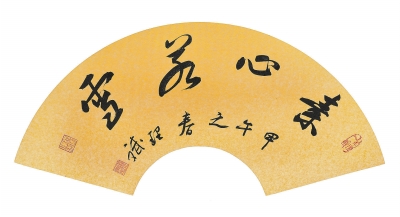 素心若雪
甲午之春 斌